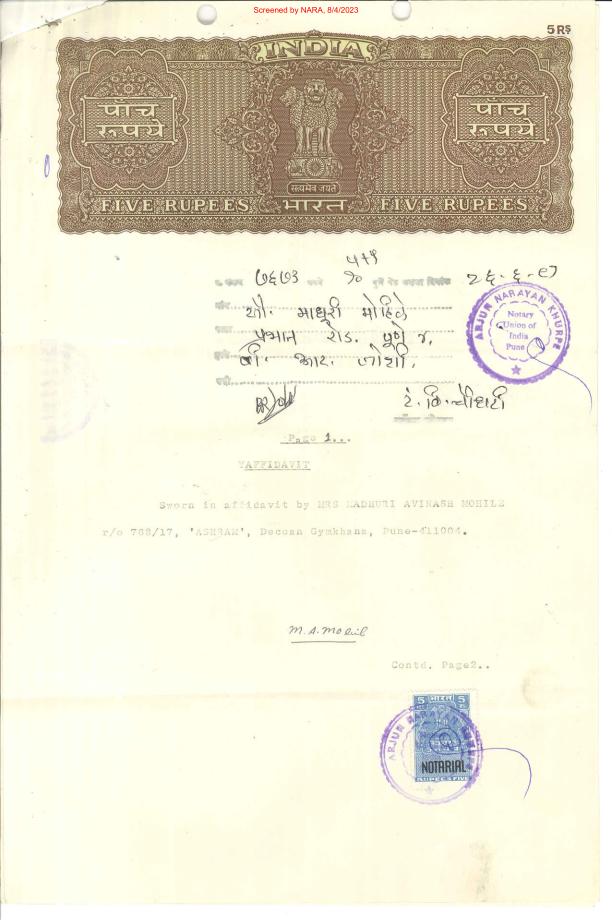 Screened by NARA, 8/4/2023
5 RS
INDIA
पाँच रुपये
पाँच रुपये
सत्यमेव जयते
FIVE RUPEES भारत FIVE RUPEES
५+५
७६७३ १० २६.६.८७
सौ. माधुरी मोहिले
प्रभात रोड. पुणे ४.
बी. आर. जोशी.
ARJUN NARAYAN KHURPE
Notary
Union of
India
Pune
Page 1...
AFFIDAVIT
Sworn in affidavit by MRS MADHURI AVINASH MOHILE
r/o 768/17, 'ASHRAM', Deccan Gymkhana, Pune-411004.
M. A. Mohile
Contd. Page2..
5 भारत 5
ARJUN NARAYAN KHURPE
NOTARIAL
RUPEES FIVE